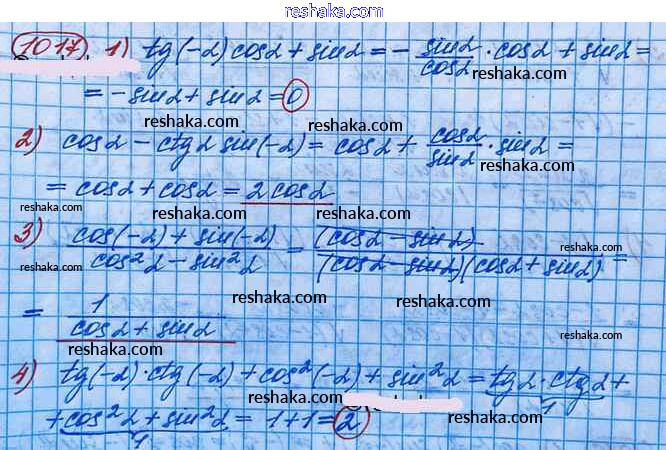 reshaka.com
1017 1) tg(-α) cosα + sinα = - sinα/cosα · cosα + sinα =
reshaka.com
= -sinα + sinα = 0
reshaka.com
reshaka.com
2) cosα - ctgα sin(-α) = cosα + cosα/sinα · sinα =
reshaka.com
= cosα + cosα = 2cosα
reshaka.com
reshaka.com
3) (cos(-α) + sin(-α))/(cos²α - sin²α) = (cosα - sinα)/((cosα - sinα)(cosα + sinα)) =
reshaka.com
reshaka.com
= 1/(cosα + sinα)
reshaka.com
reshaka.com
reshaka.com
4) tg(-α) · ctg(-α) + cos²(-α) + sin²α = tgα · ctgα +
1
reshaka.com
+ cos²α + sin²α = 1 + 1 = 2
1
reshaka.com
reshaka.com